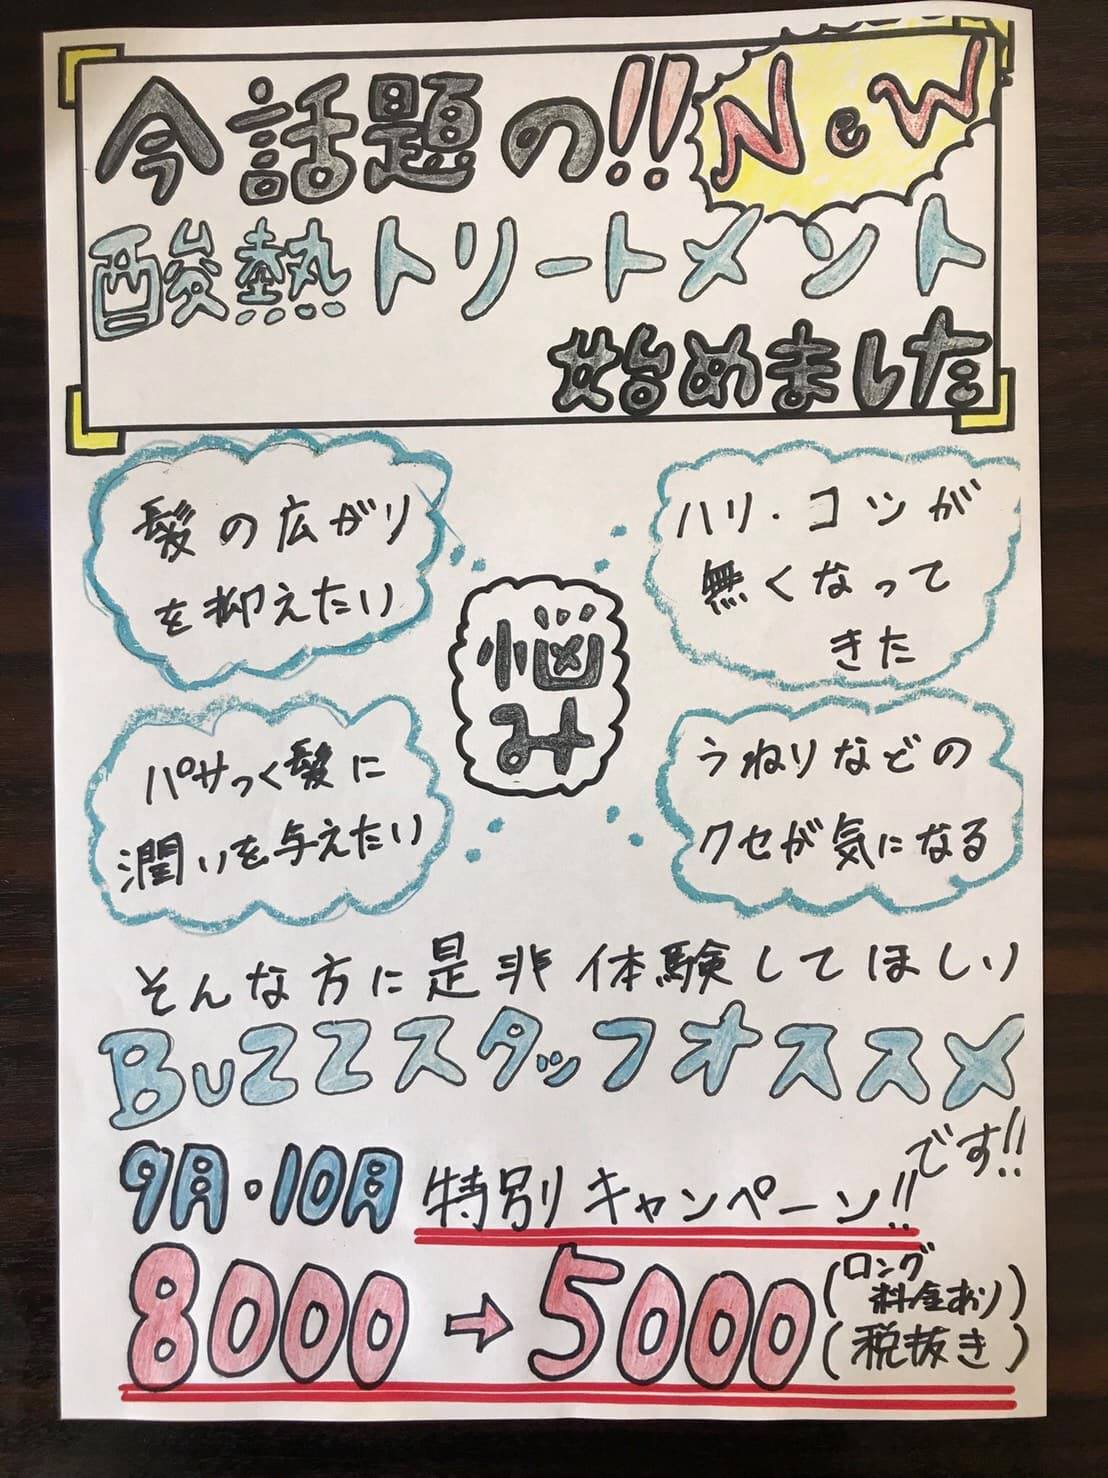 今話題の!! New
酸熱トリートメント
始めました
髪の広がり
を抑えたい
ハリ・コシが
無くなって
きた
悩み
パサつく髪に
潤いを与えたい
うねりなどの
クセが気になる
そんな方に是非体験してほしい
BuZZスタッフオススメ
です!!
9月・10月 特別キャンペーン!!
8000→5000
(ロング
料金あり)
(税抜き)